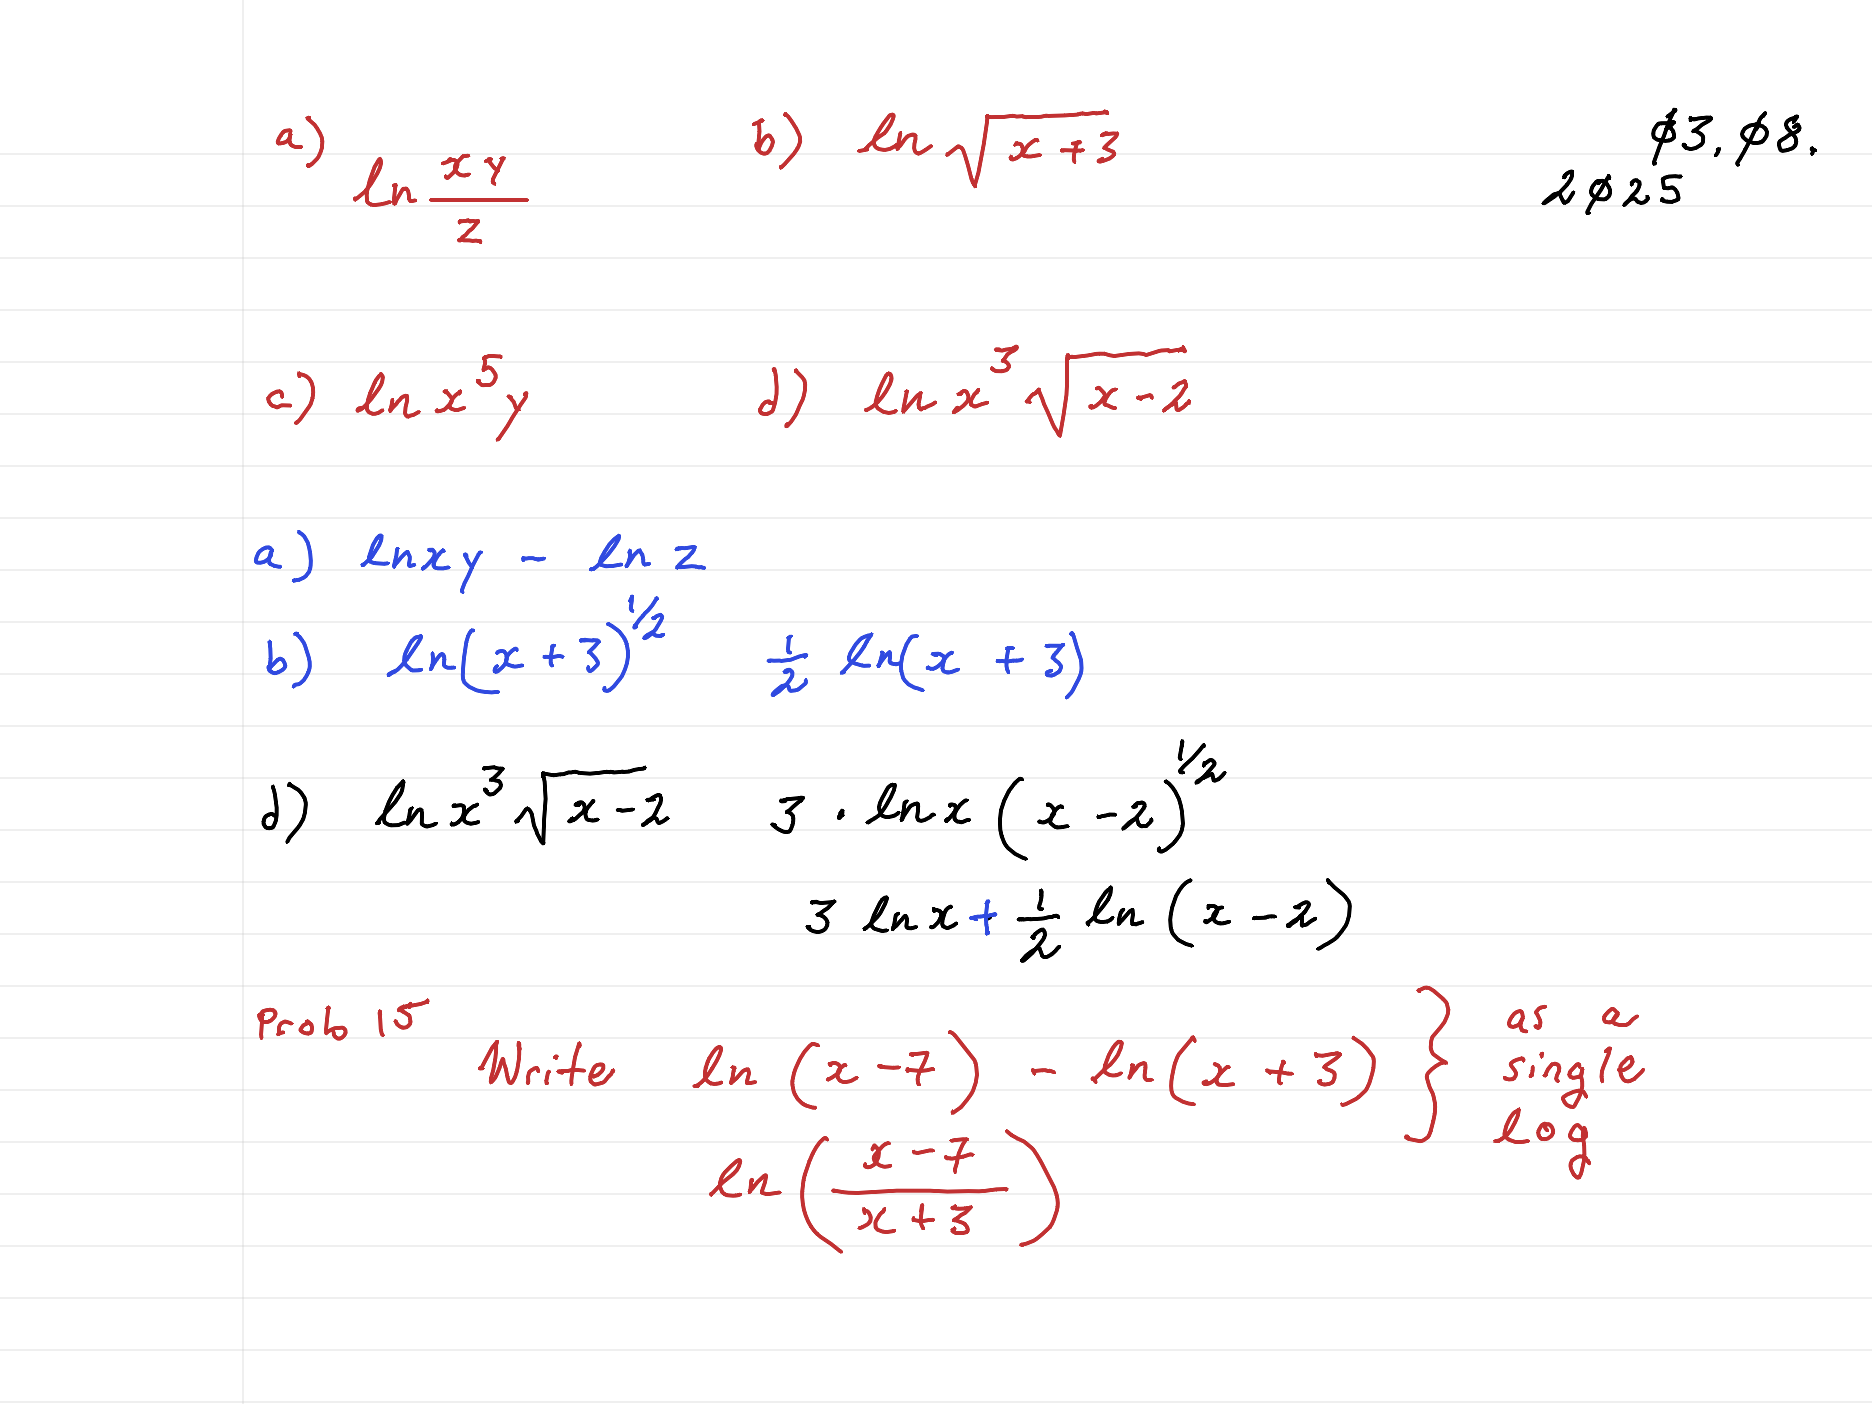 a) ln xy/z b) ln √(x+3) ø3, ø8.
2ø25
c) ln x⁵y d) ln x³ √(x-2)
a) ln xy - ln z
b) ln(x+3)^1/2 1/2 ln(x + 3)
d) ln x³ √(x-2) 3 · ln x (x-2)^1/2
3 ln x + 1/2 ln (x-2)
Prob 15
Write ln (x-7) - ln(x+3) } as a single log
ln ( x-7 / x+3 )